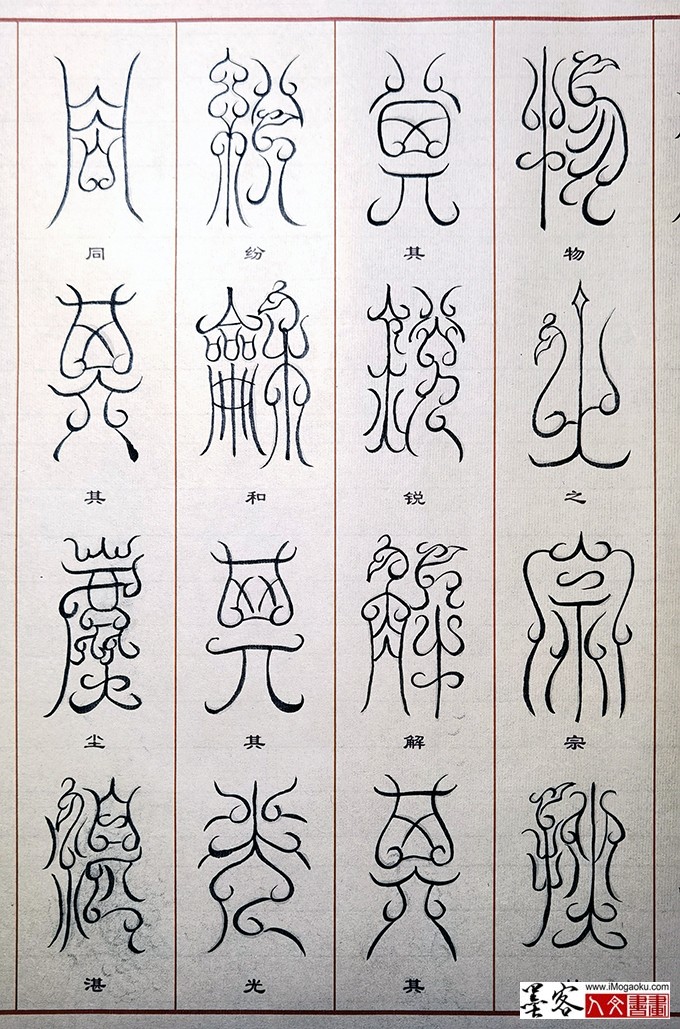 物之宗
其锐解其
纷和其光
同其尘湛
墨客
www.iMogaoku.com
人文書畫